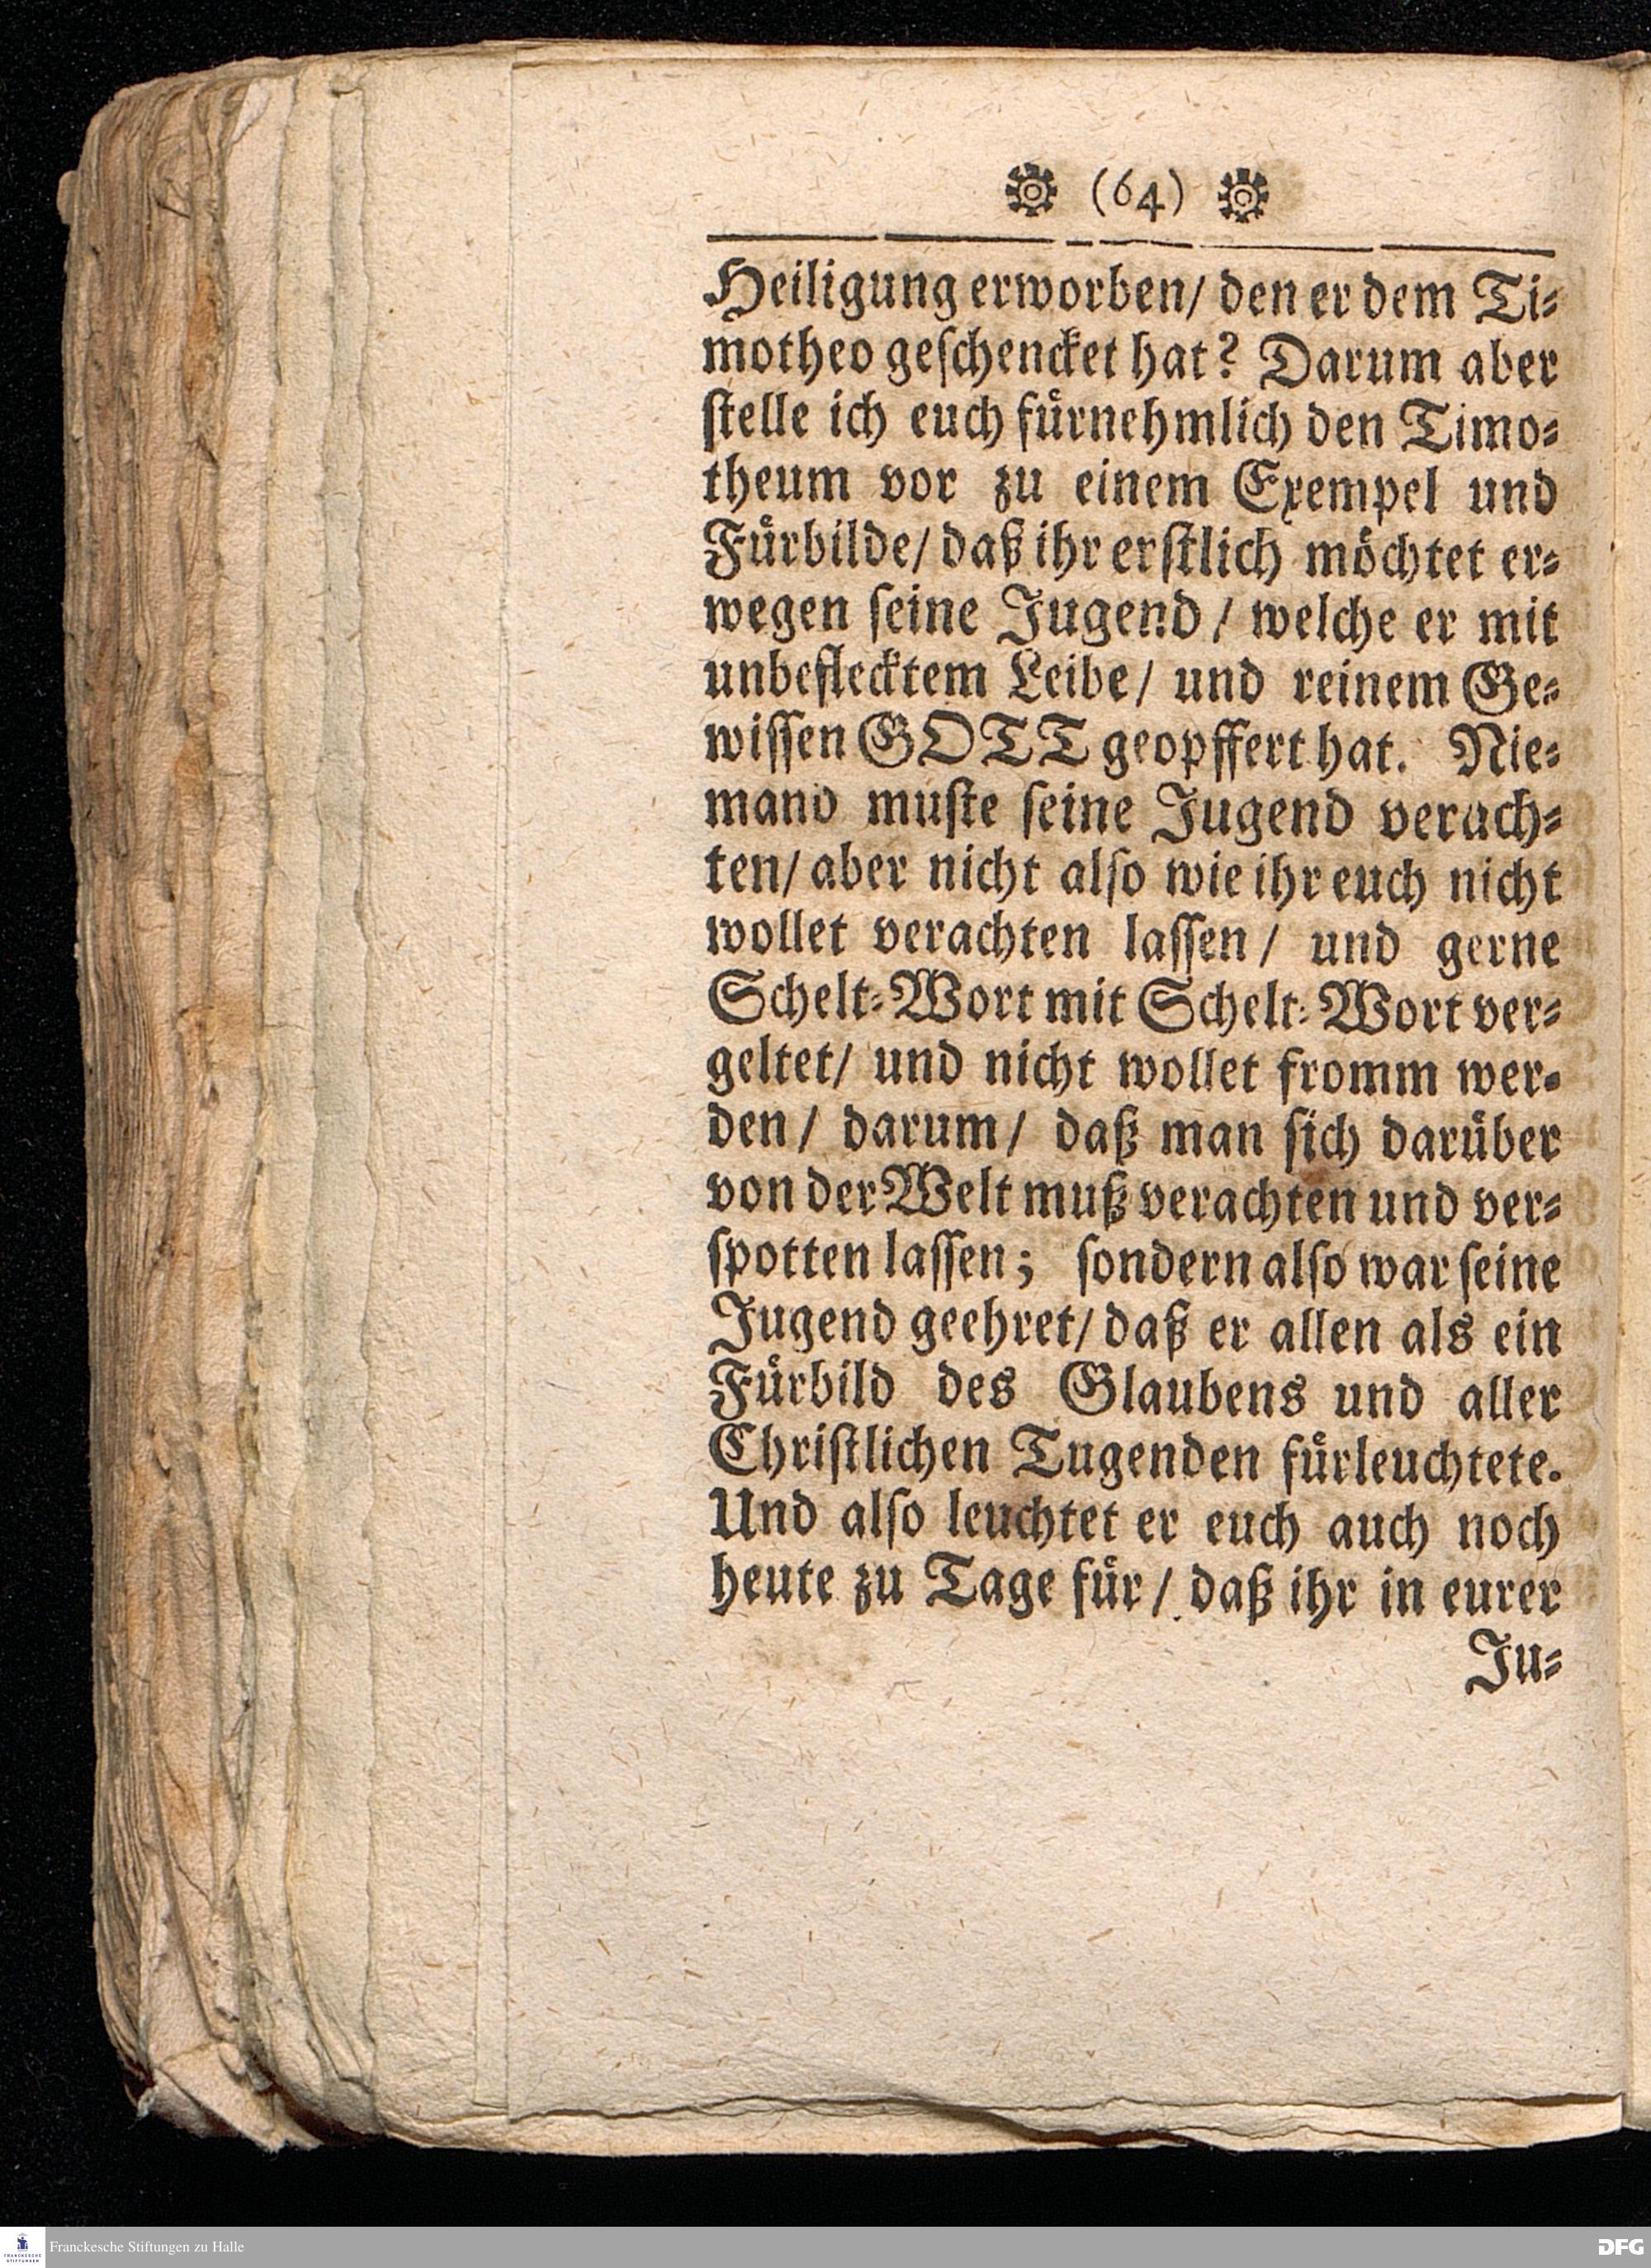 (64)
Heiligung erworben/ den er dem Ti⸗
motheo geſchencket hat? Darum aber
ſtelle ich euch fuͤrnehmlich den Timo⸗
theum vor zu einem Exempel und
Fuͤrbilde/ daß ihr erſtlich moͤchtet er⸗
wegen ſeine Jugend / welche er mit
unbeflecktem Leibe/ und reinem Ge⸗
wiſſen GOTT geopffert hat. Nie⸗
mand muſte ſeine Jugend verach⸗
ten/ aber nicht alſo wie ihr euch nicht
wollet verachten laſſen / und gerne
Schelt⸗Wort mit Schelt⸗Wort ver⸗
geltet/ und nicht wollet fromm wer⸗
den / darum / daß man ſich daruͤber
von der Welt muß verachten und ver⸗
ſpotten laſſen; ſondern alſo war ſeine
Jugend geehret/ daß er allen als ein
Fuͤrbild des Glaubens und aller
Chriſtlichen Tugenden fuͤrleuchtete.
Und alſo leuchtet er euch auch noch
heute zu Tage fuͤr / daß ihr in eurer
Ju⸗
FRANCKESCHE STIFTUNGEN
Franckesche Stiftungen zu Halle
DFG